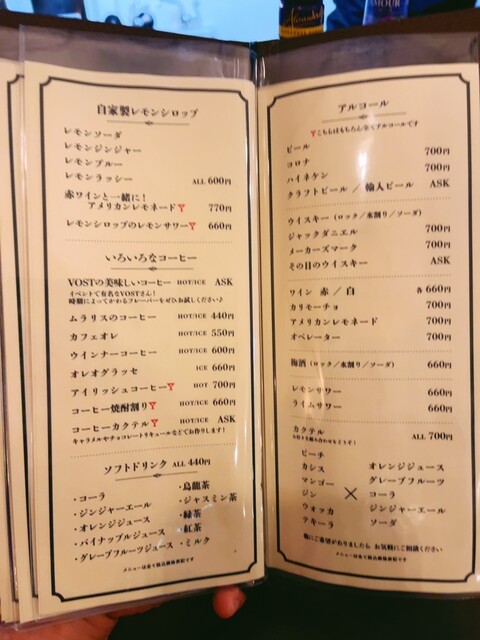 自家製レモンシロップ
レモンソーダ
レモンジンジャー
レモンブルー
レモンラッシー ALL 600円
赤ワインと一緒に!
アメリカンレモネード 770円
レモンシロップのレモンサワー 660円
いろいろなコーヒー
VOSTの美味しいコーヒー HOT/ICE ASK
イベントで有名なVOSTさん!
時期によってかわるフレーバーをぜひお試しください♪
ムラリスのコーヒー HOT/ICE 440円
カフェオレ HOT/ICE 550円
ウインナーコーヒー HOT/ICE 600円
オレオグラッセ ICE 660円
アイリッシュコーヒー HOT 700円
コーヒー焼酎割り HOT/ICE 660円
コーヒーカクテル HOT/ICE ASK
キャラメルやチョコレートリキュールなどでお作りします!
ソフトドリンク ALL 440円
・コーラ
・ジンジャーエール
・オレンジジュース
・パイナップルジュース
・グレープフルーツジュース
・烏龍茶
・ジャスミン茶
・緑茶
・紅茶
・ミルク
メニューは全て税込価格表記です
アルコール
こちらはもちろん全てアルコールです
ビール 700円
コロナ 700円
ハイネケン 700円
クラフトビール / 輸入ビール ASK
ウイスキー (ロック/水割り/ソーダ)
ジャックダニエル 700円
メーカーズマーク 700円
その日のウイスキー ASK
ワイン 赤 / 白 各 660円
カリモーチョ 700円
アメリカンレモネード 700円
オペレーター 700円
梅酒 (ロック/水割り/ソーダ) 660円
レモンサワー 660円
ライムサワー 660円
カクテル ALL 700円
お好きな組み合わせをどうぞ!
ピーチ
カシス
マンゴー
ジン
ウォッカ
テキーラ
×
オレンジジュース
グレープフルーツ
コーラ
ジンジャーエール
ソーダ
他にご希望がありましたら お気軽にご相談ください
メニューは全て税込価格表記です